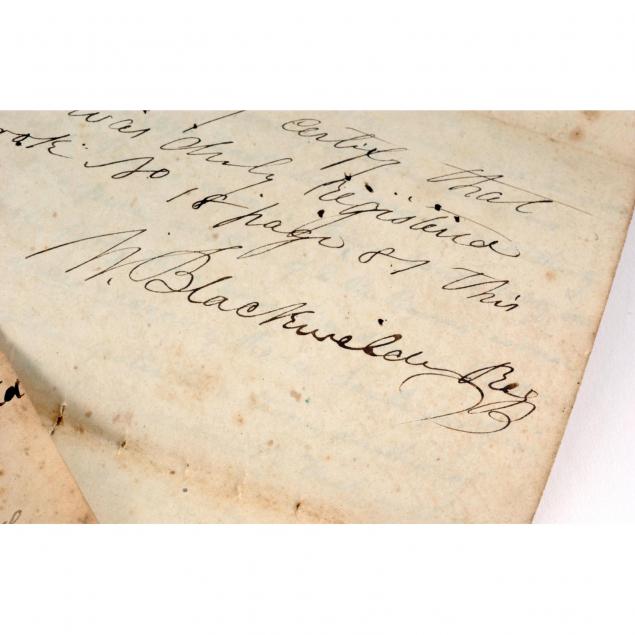 certify that
was duly Registered
ook No 18 page 81 this
W. Blackwelder Reg